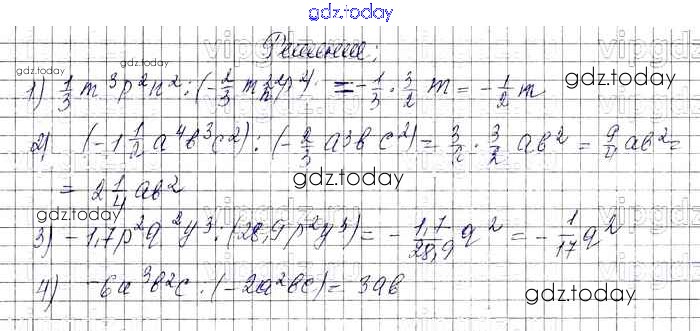 gdz.today
Решение:
gdz.today gdz.today
1) 1/3 m³p²n² : (-2/3 m²n²p²) = -1/3 · 3/2 m = -1/2 m
gdz.today
2) (-1 1/2 a⁴b³c²) : (-2/3 a³bc²) = 3/2 · 3/2 ab² = 9/4 ab² =
gdz.today
= 2 1/4 ab²
gdz.today
3) -1,7p²q²y³ : (28,9p²y³) = -1,7/28,9 q² = -1/17 q²
4) -6a³b²c : (-2a²bc) = 3ab
gdz.today